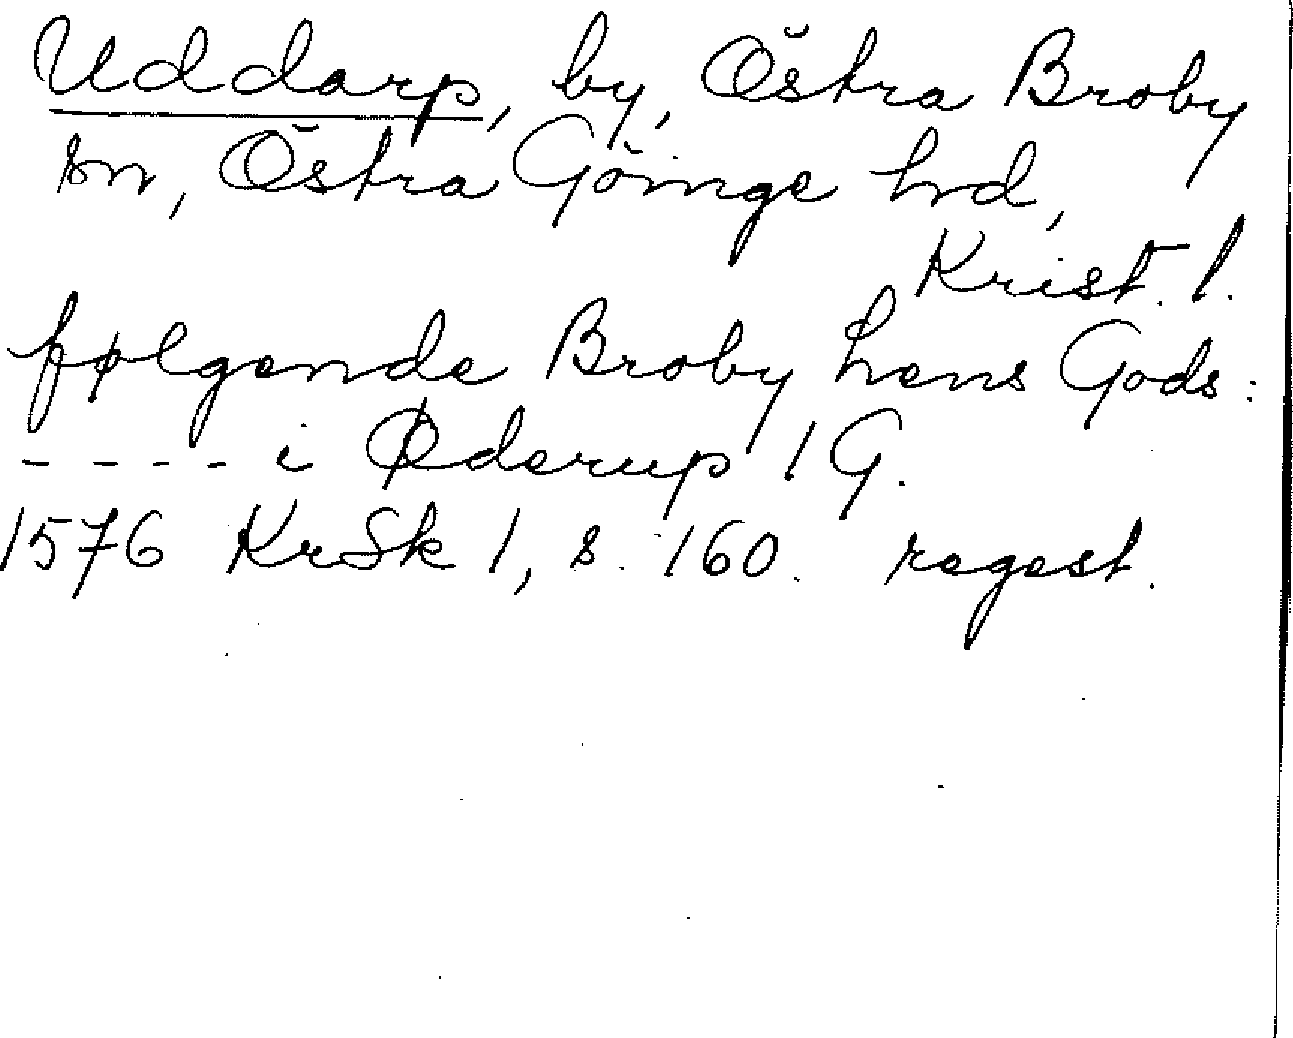 Uddarp, by, Östra Broby
sn, Östra Göinge hrd,
Krist. l.
følgende Broby Lens Gods:
---- i Øderup 1 G.
1576 KrSk 1, s. 160. regest.